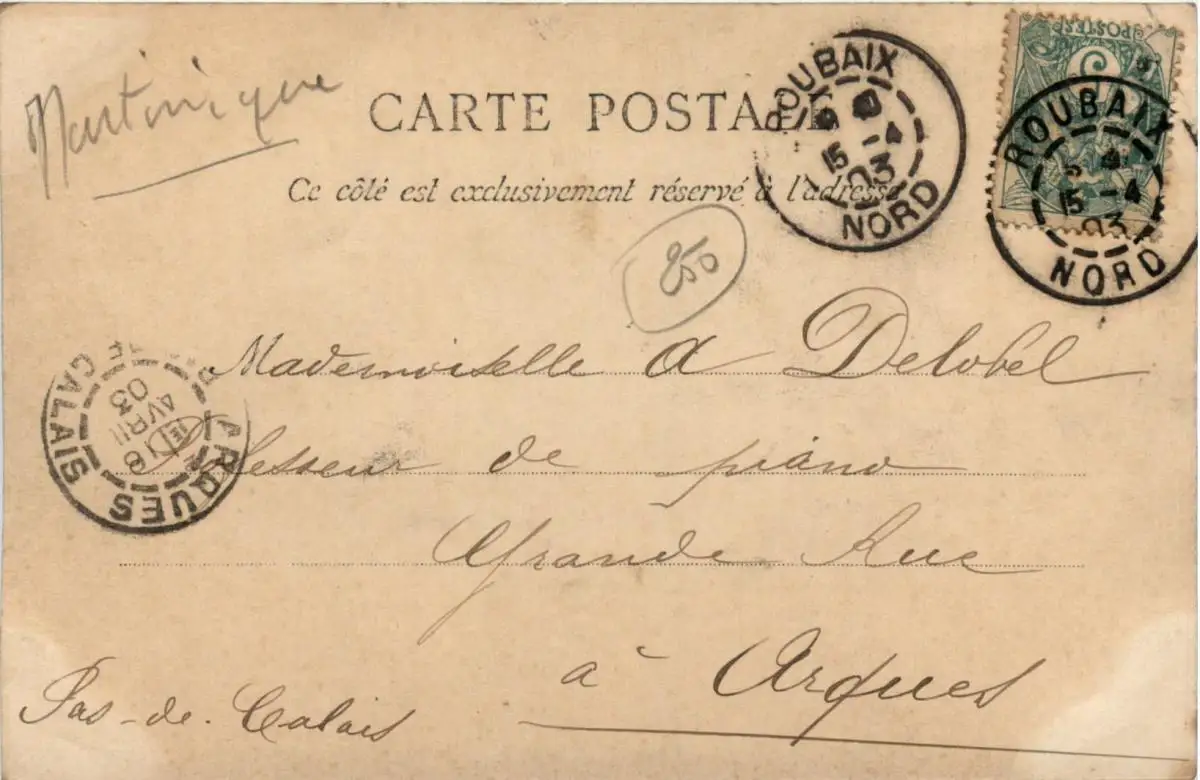 Martinique
CARTE POSTALE
Ce côté est exclusivement réservé à l'adresse
ROUBAIX
15 -4
03
NORD
POSTES
5
ROUBAIX
15 -4
03
NORD
250
Mademoiselle A Delobel
Professeur de piano
Grande Rue
à Arques
Pas-de-Calais
ARQUES
CALAIS
AVRIL
03